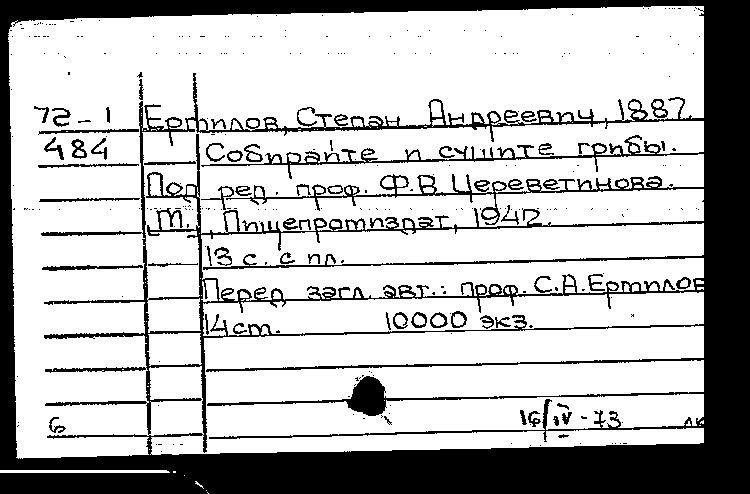 72-1 Ертилов, Степан Андреевич, 1887.
484 Собирайте и сушите грибы.
Под ред. проф. Ф.В. Церевитинова.
М., Пищепромиздат, 1942.
13 с. с ил.
Перед загл. авт.: проф. С.А.Ертилов
14ст. 10000 экз.
6 16/IV-73